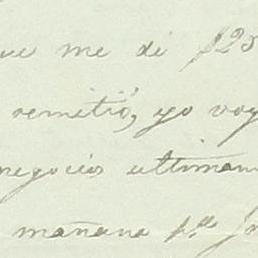 que me di $25
remitió, yo voy
negocios ultimam
mañana pa